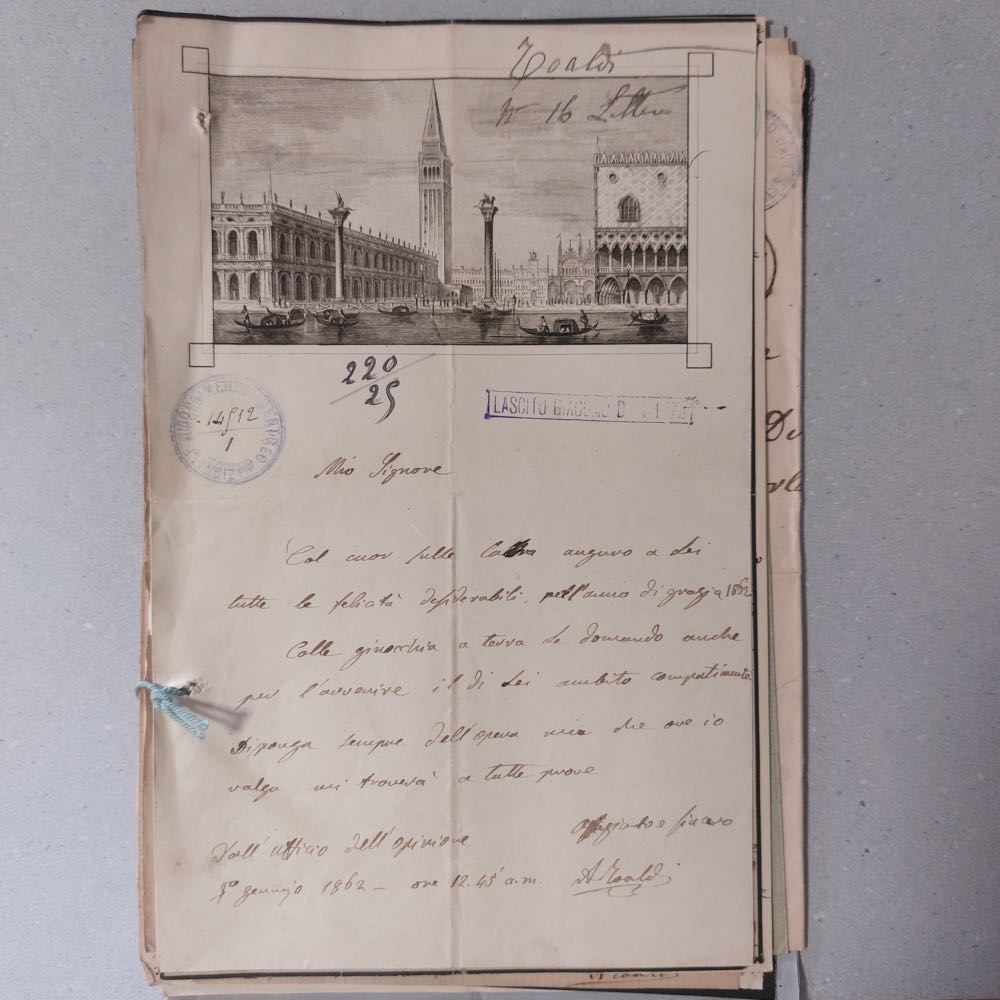 Toaldi
N 16 Lettere
220
25
14912
1
TORINO
LASCITO GIACOMO
Mio Signore
Col cuor sulle labbra auguro a Lei
tutte le felicità desiderabili, nell'anno di grazia 1862
Colle ginocchia a terra Le domando anche
per l'avvenire il di Lei ambito compatimento.
Disponga sempre dell'opera mia che ove io
valga mi troverà a tutte prove.
Dall'ufficio dell'opinione
gennajo 1862 - ore 12.45 a.m.
sincero
AToaldi